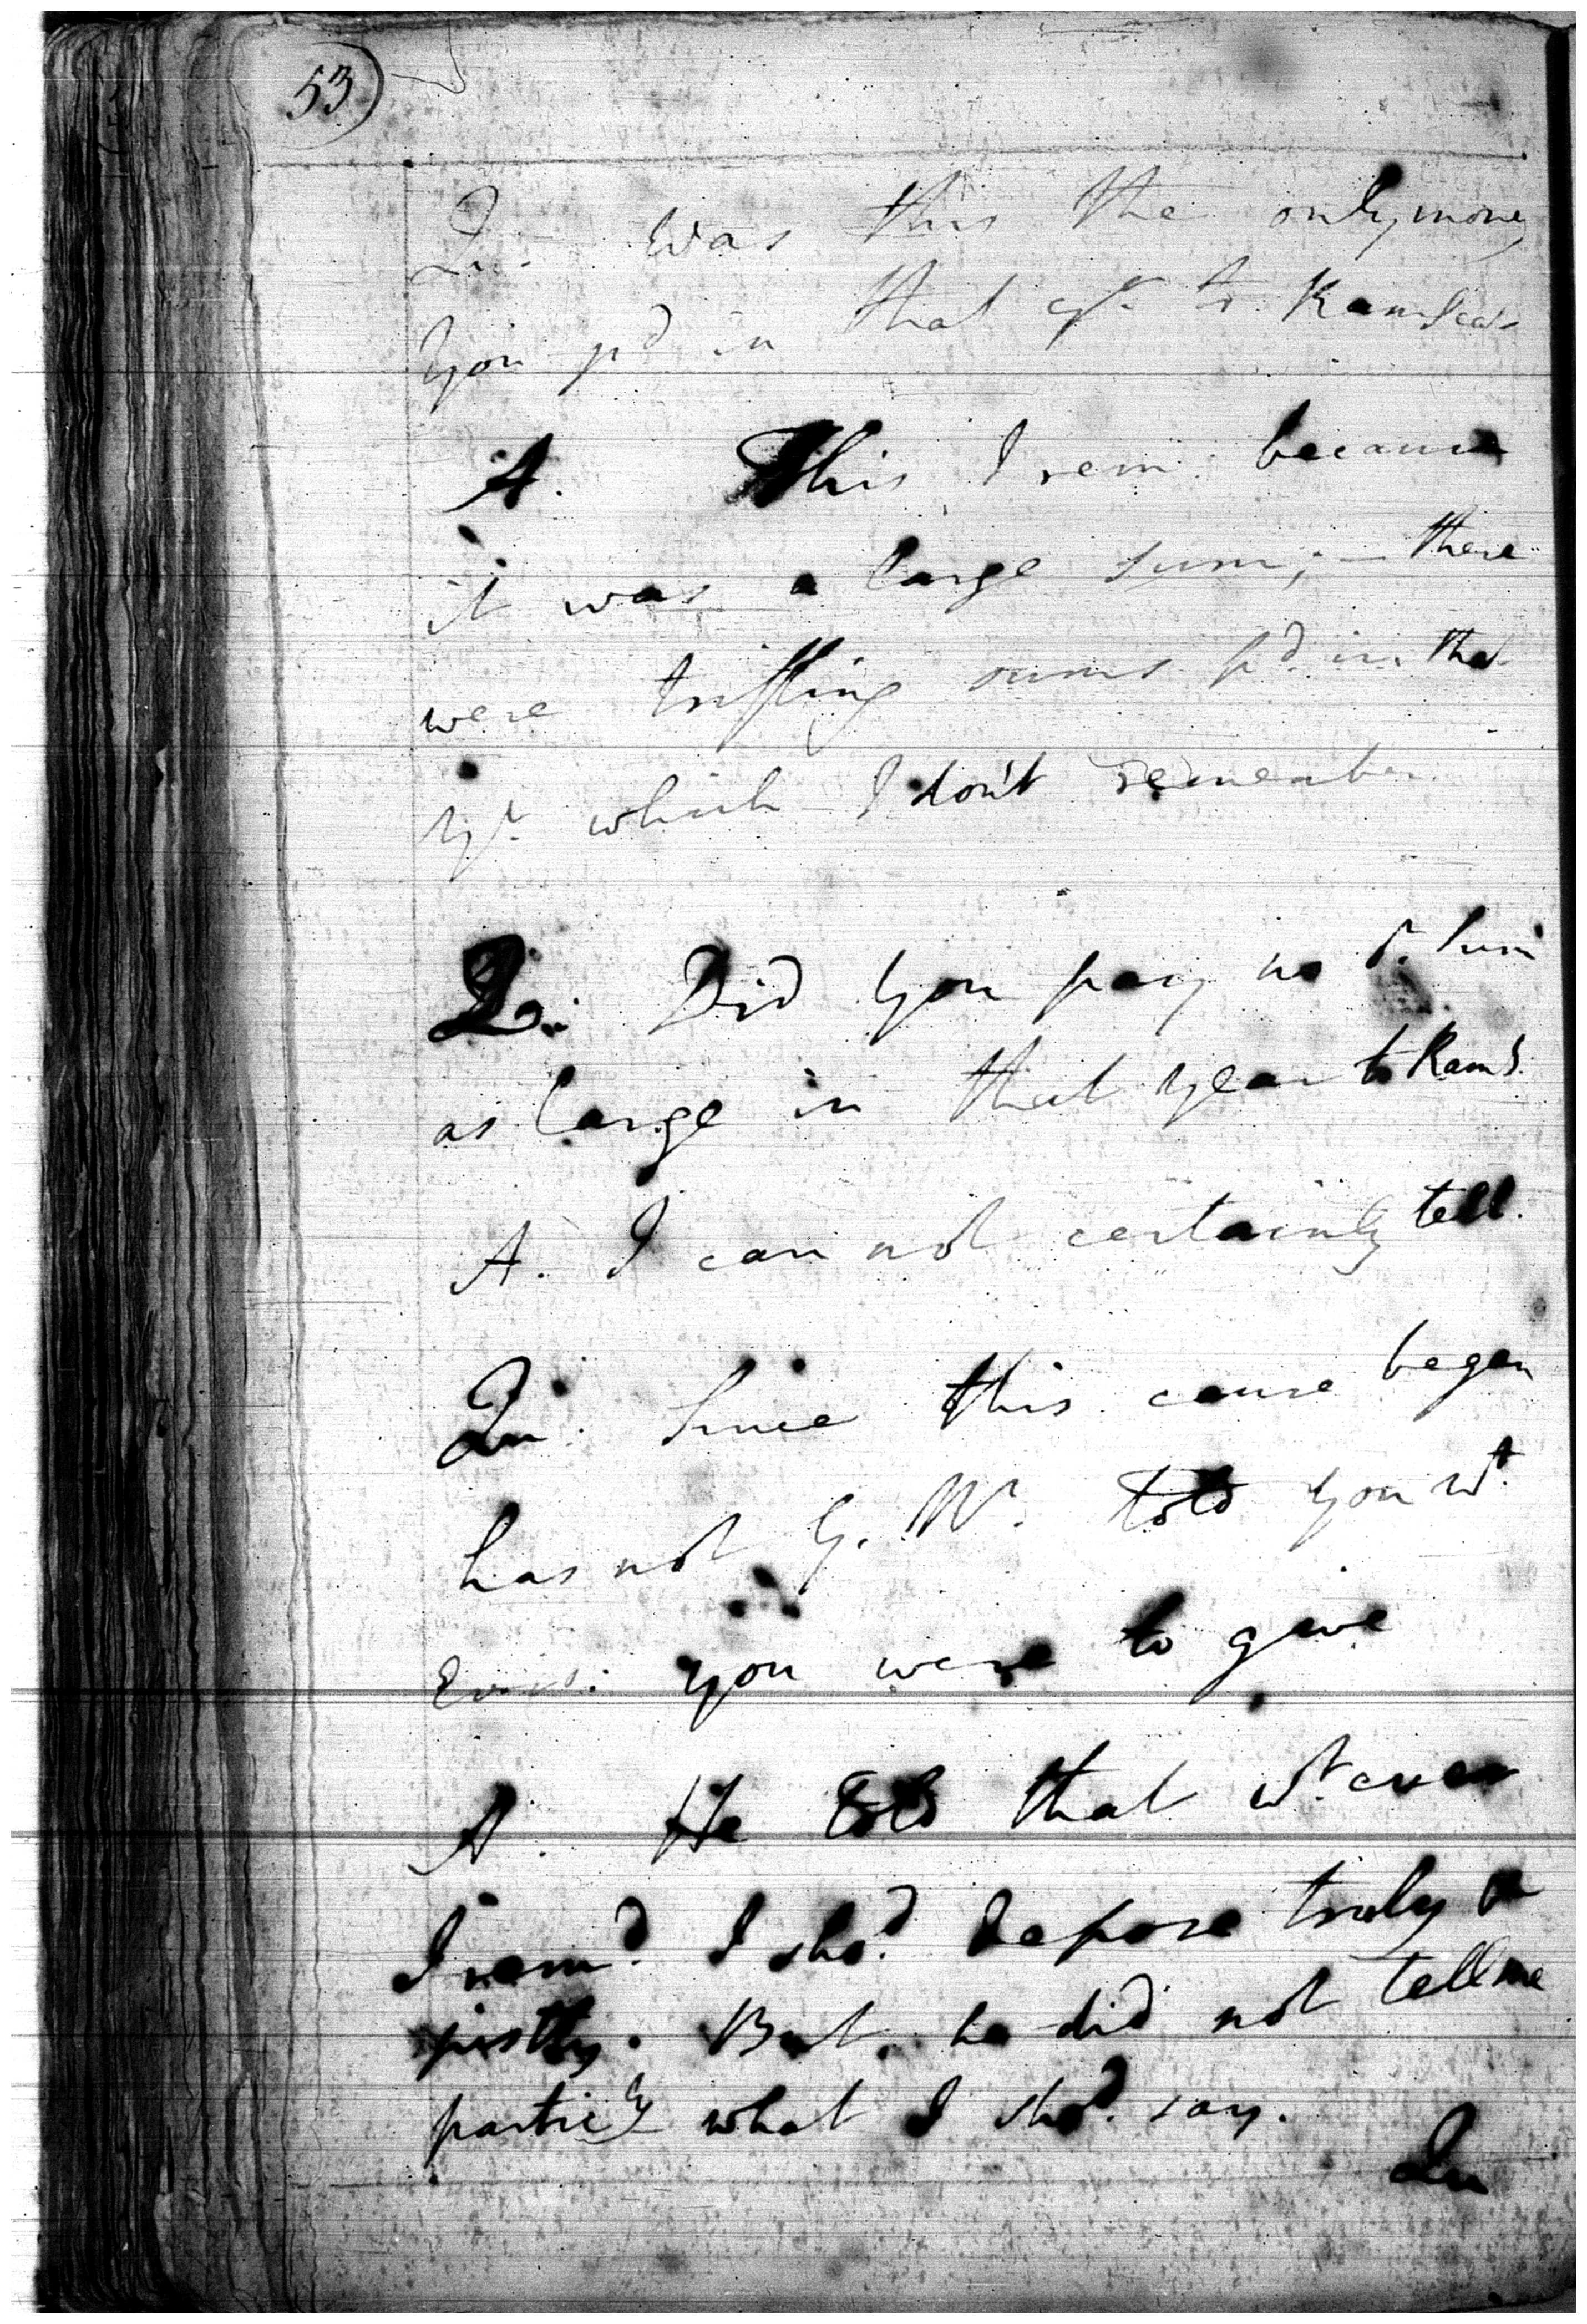 53)
Qu. Was this the only money
you pd in that yr. to Ramd
A. This I rem. because
it was a large sum; – there
were triffling sums pd. in that
yr. which I don't remember.
Q. Did you pay no sum
as large in that year to Ramd.
A. I can not certainly tell.
Qu. Since this cause began
has not G. M. told you wt.
Evid. you were to give
A. He told that wt. ever
I remd. I shod. depose truly &
justly. But he did not tell me
particly what I shod. say.
Qu